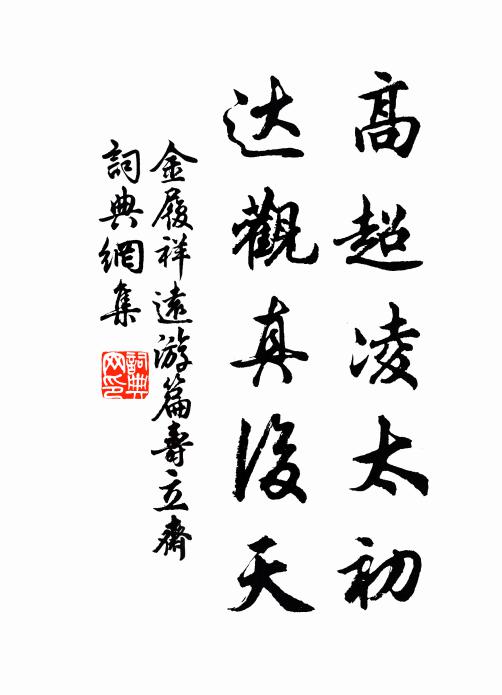 高超凌太初
达觀真後天
金履祥遠游篇壽立齋
詞典網集
詞典網印